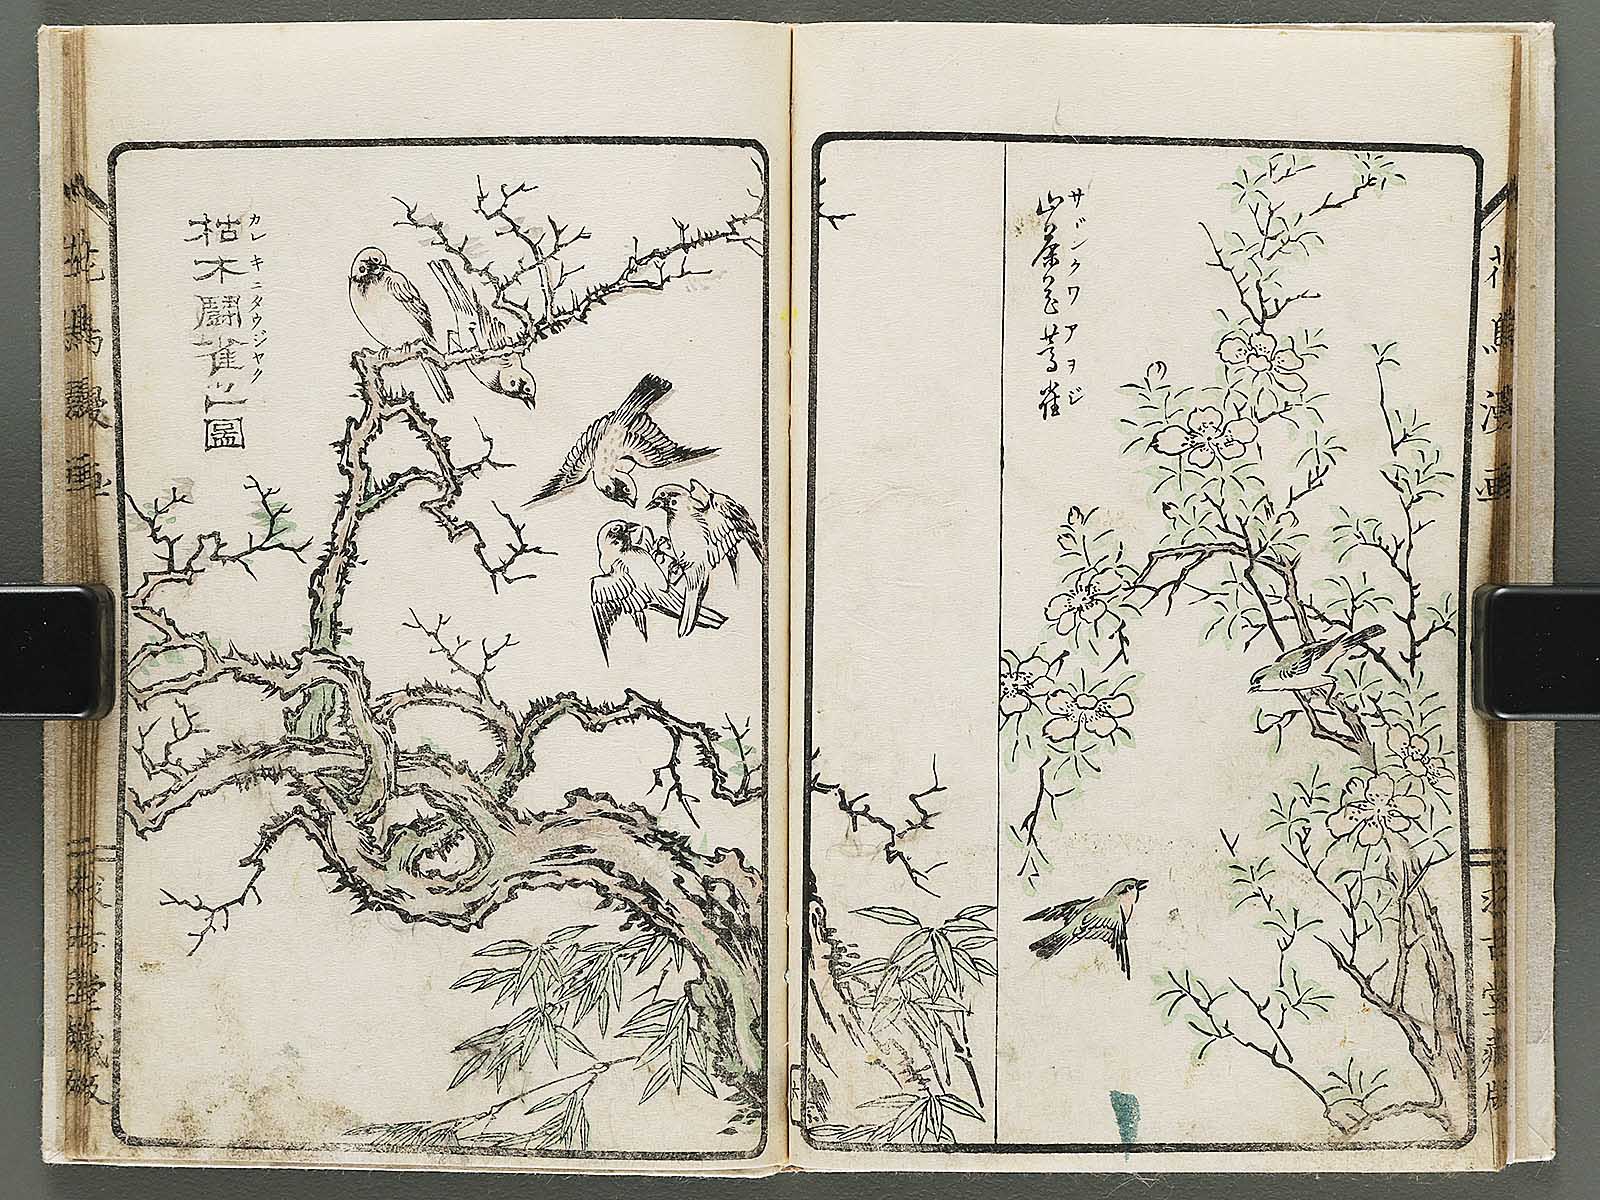 花鳥漫画
古堂蔵版
サヾンクワアヲジ
山茶花蒿雀
カレキニタウジヤク
枯木鬪雀之圖
花鳥
画
堂藏版